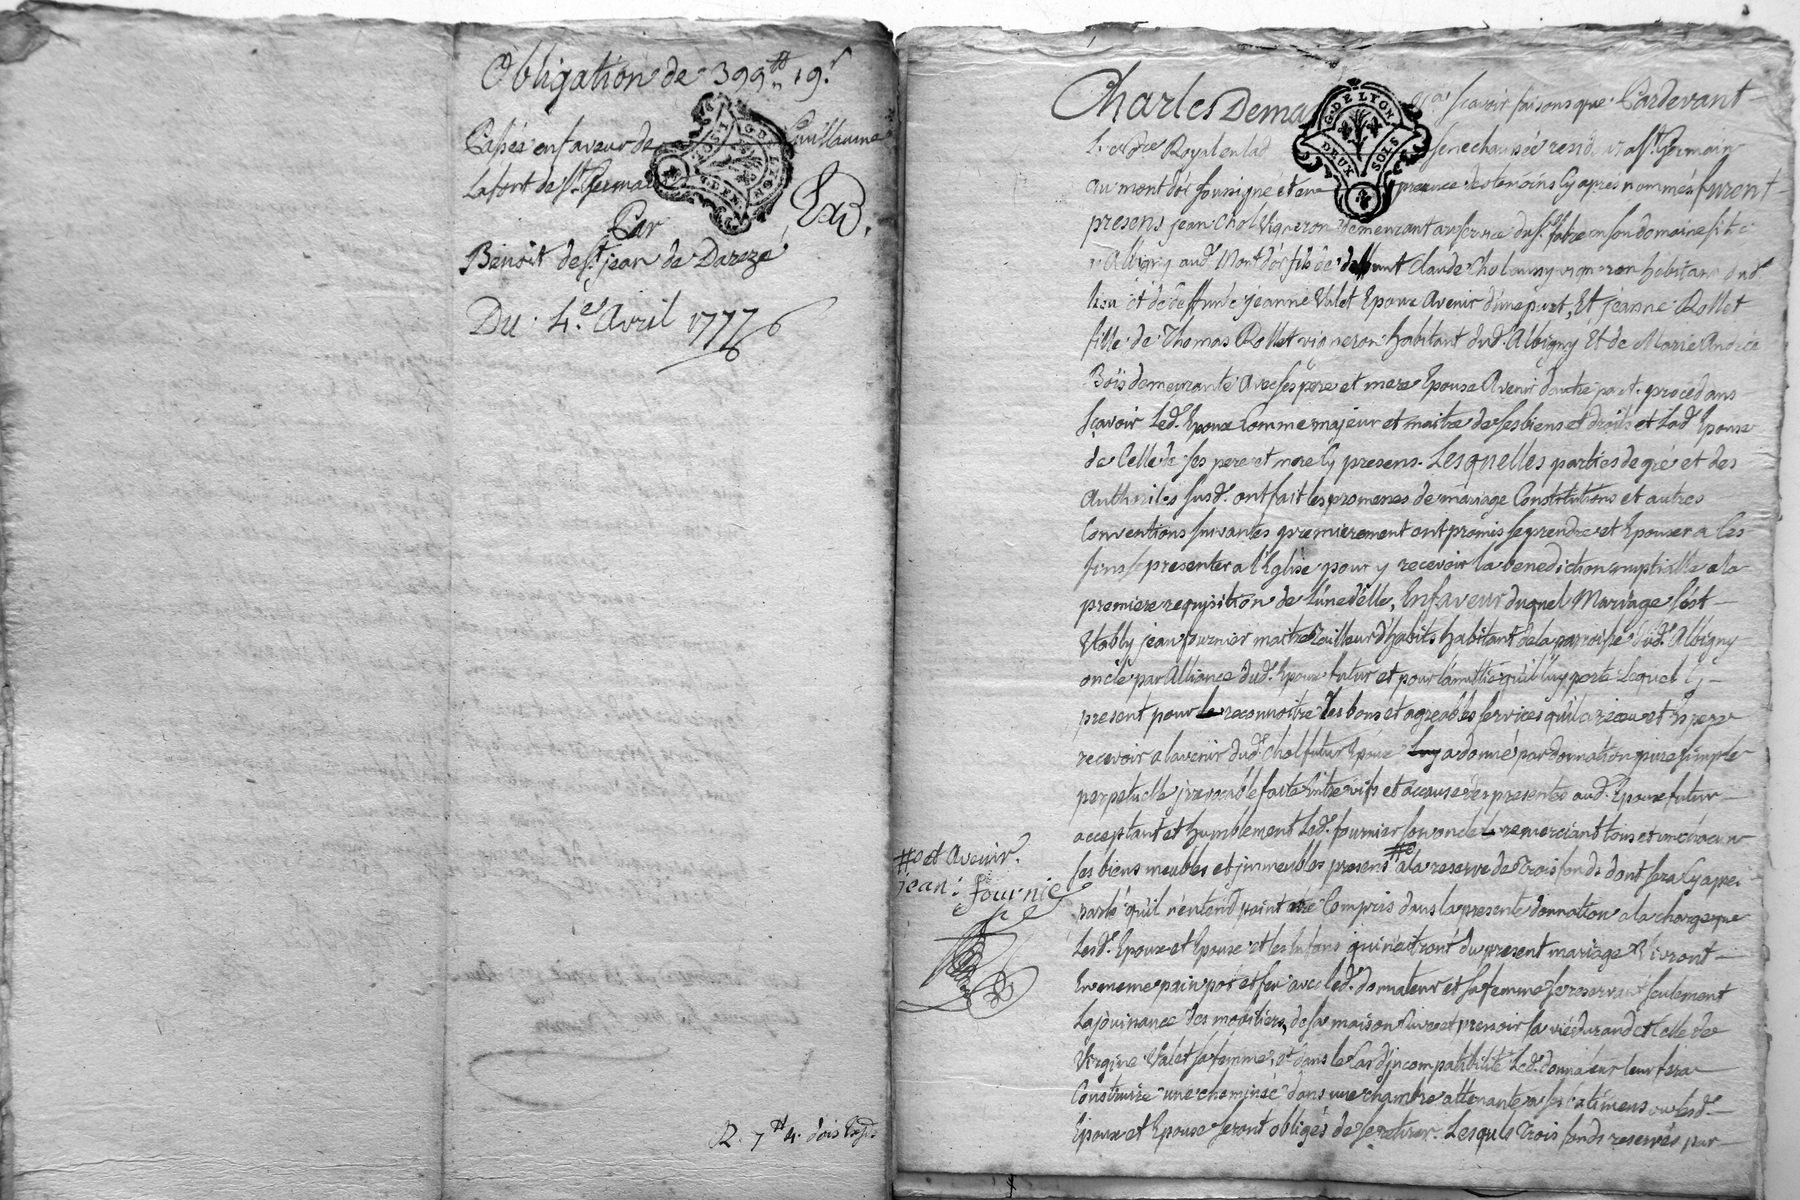 Obligation de 399ᵗᵗ 19ˢ
Passés en faveur de Guillaume
Lafort de Sᵗ Germai
Exp.
Par
Benoit de Sᵗ jean de Dareze
Du 4.ᵉ Avril 1777
R. 7ᵗᵗ 4.
G. DE LYON
DEUX SOLS
Charles Dema scavoir faisons que Pardevant
Le Royal en lad senechaussée resid. a Sᵗ Germain
au mont d'or soussigné et en presence des temoins cy apres nommés furent
presens jean Chol Vigneron demeurant au service du Sʳ fabre en son domaine situé
a Albigny aud. Mont d'or fils de deffunt Claude Chol vigneron habitant dud.
lieu et de deffunte jeanne Valet Epoux Avenir d'une part, Et jeanne Rollet
fille de Thomas Rollet vigneron habitant dud. Albigny Et de Marie Andrée
Bois demeurante Avec ses pere et mere Epouse Avenir d'autre part. procedans
sçavoir Led. Epoux Comme majeur et maitre de ses biens et droits et Lad. Epouse
de Celle de ses pere et mere Cy presens. Lesquelles parties de gré et des
Authorités susd. ont fait les promesses de mariage Constitutions et autres
Conventions suivantes premierement ont promis se prendre et Epouser a Ces
fins se presenter a l'Eglise pour y recevoir la benediction nuptialle a la
premiere requisition de L'une d'elle, En faveur duquel Mariage s'est
Etably jean fournier maitre Tailleur d'habits habitant de la parroisse dud. Albigny
oncle par Alliance dud. Epoux futur et pour l'amitié qu'il luy porte Lequel Cy
present pour le reconnoitre Les bons et agreables services qu'il a reçu et Espere
recevoir a l'avenir dud. Chol futur Epoux luy a donné par donnation pure simple
perpetuelle jrrevocable faite Entre vifs et a cause des presentes aud. Epoux futur
acceptant et humblement Led. fournier son oncle remerciant tous et un chacun
#o et Avenir.
jean : fournie
ses biens meubles et jmmeubles presens #o a la reserve de Trois fonds dont sera Cy apres
parlé qu'il n'entend point Compris dans la presente donnation a la charge que
Lesd. Epoux et Epouse et les Enfans qui naitront du present mariage Vivront
En meme pain pot et feu avec led. donnateur et sa femme se reservant seulement
La jouissance des mobiliers, de sa maison sa vie durand et Celle de
Virgine Valet sa femme, et dans le Cas d'jncompatibilité Led. donnateur leur fera
Construire une cheminée dans une chambre attenante a ses batimens ou lesd.
Epoux et Epouse seront obligés de se retirer. Lesquels Trois fonds reservés par